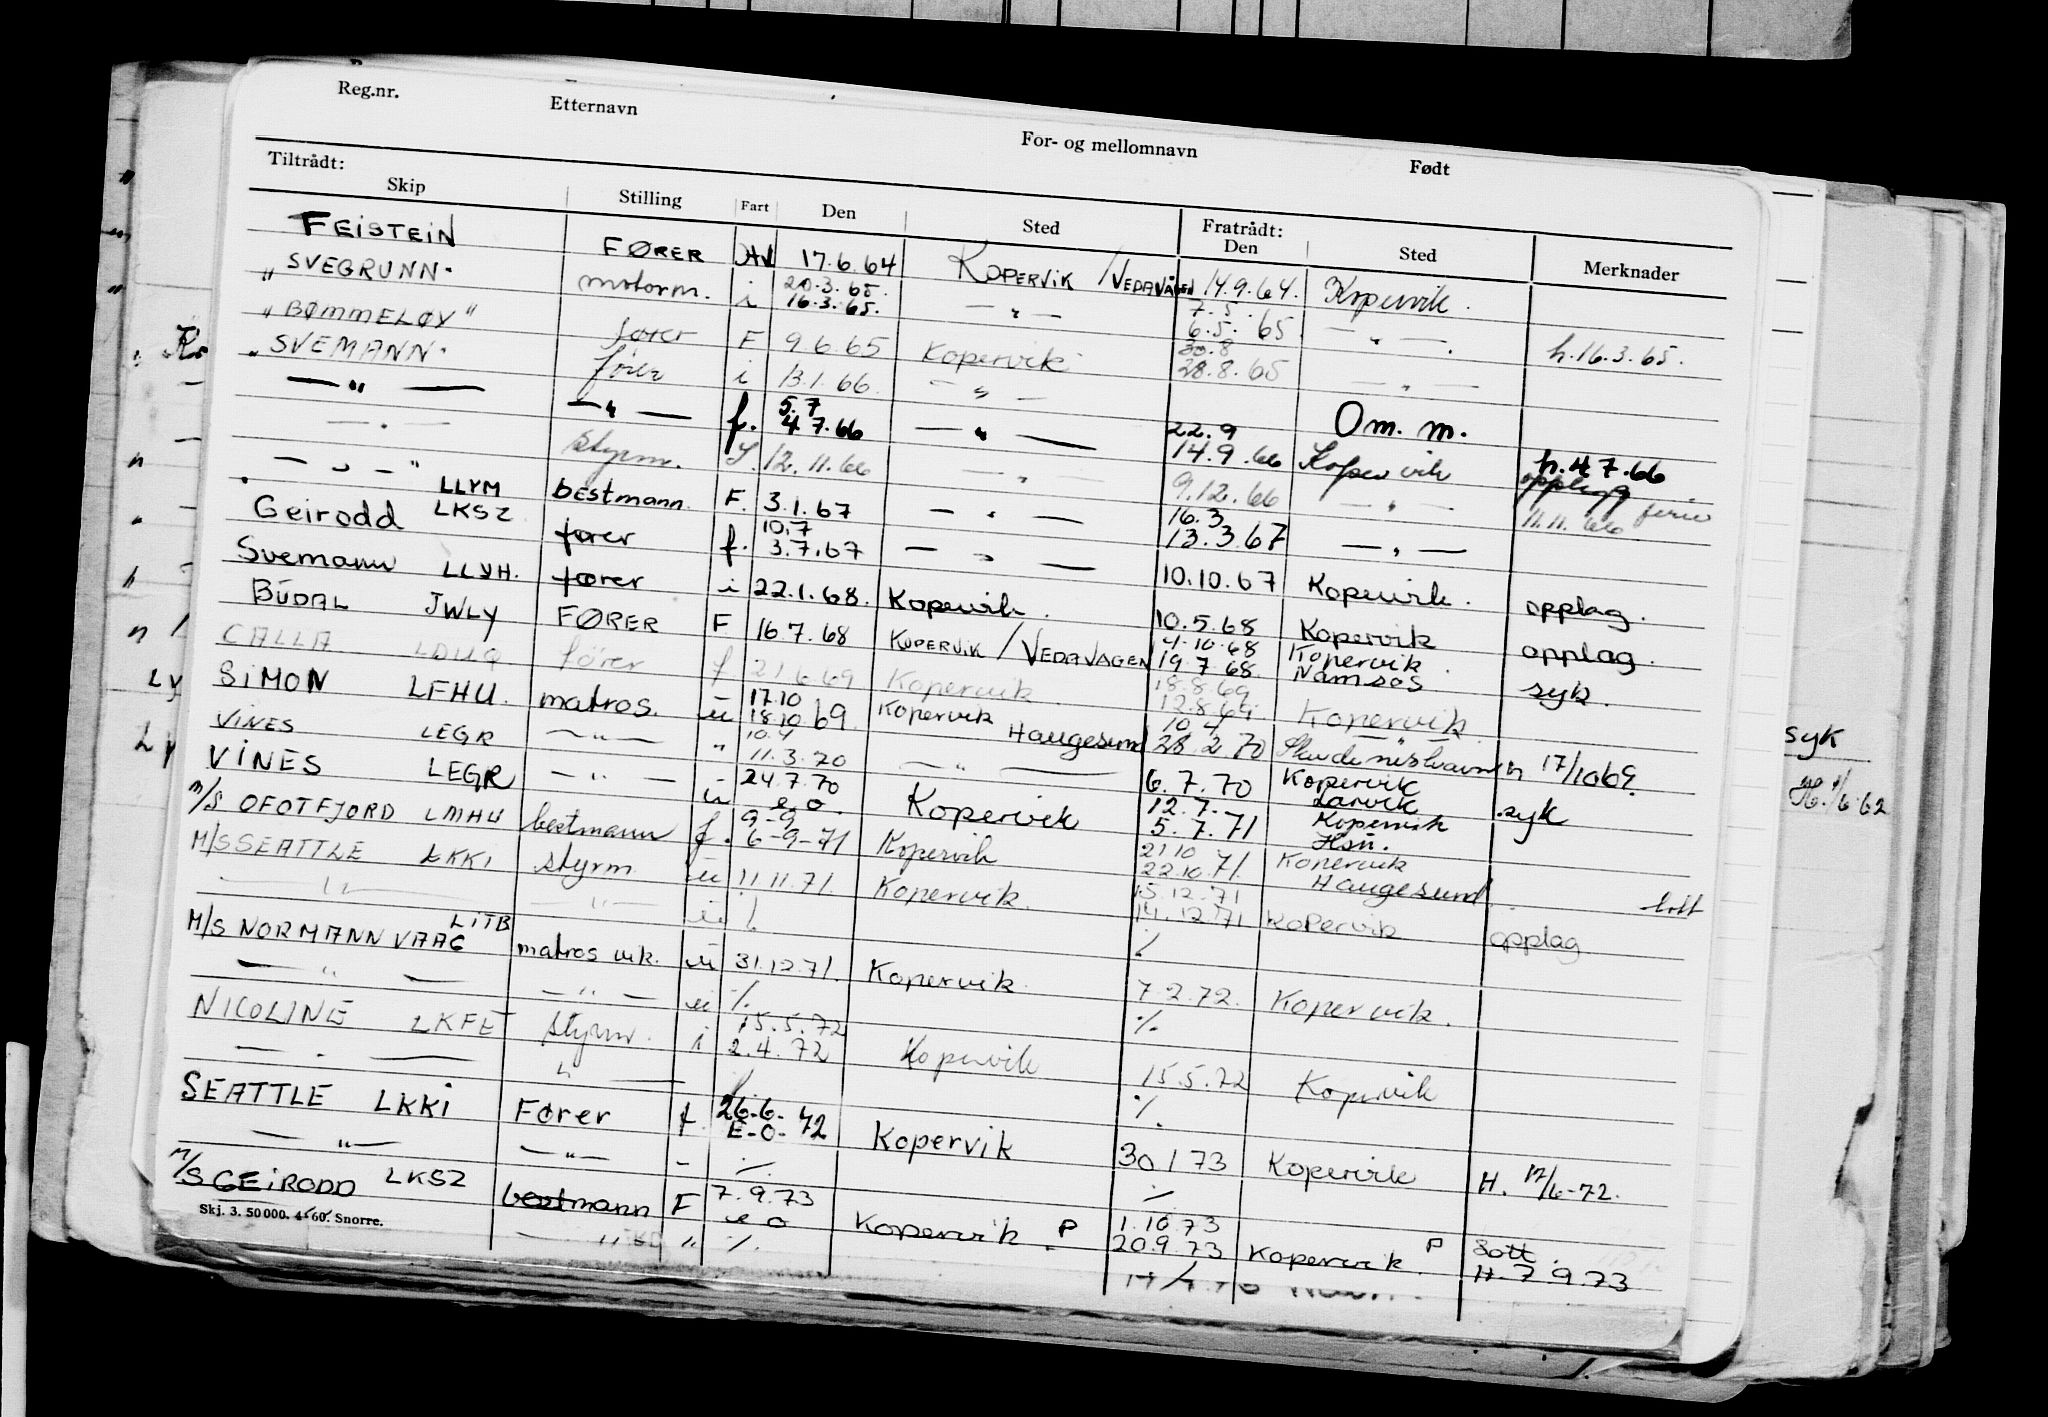 Reg.nr. Etternavn For- og mellomnavn Født
Tiltrådt: Fratrådt:
Skip Stilling Fart Den Sted Den Sted Merknader
FEISTEIN FØRER 17.6.64 KOPERVIK / VEDAVÅGEN 14.9.64. Kopervik.
"SVEGRUNN" motorm. i 20.3.65. 16.3.65. — " — 7.5. 6.5. 65 — " —. h.16.3.65.
"BØMMELØY" fører F 9.6.65 Kopervik 30.8 28.8.65 — " —
"SVEMANN" fører i 13.1.66. — " — Om. m.
— " — — " — f. 5.7 4.7.66 — " — 22.9 14.9.66 Kopervik h.4.7.66
— " — styrm. 12.11.66 — " — 9.12.66 — " — ferie 11.11.66
— " — " LLYM bestmann. F. 3.1.67 — " — 16.3 13.3.67 — " —
Geirodd LKSZ fører f. 10.7 3.7.67 — " — 10.10.67 Kopervik. opplag.
Svemann LLYH. fører i 22.1.68. Kopervik. 10.5.68 Kopervik opplag.
BUDAL JWLY FØRER F 16.7.68 KOPERVIK / VEDAVÅGEN 4.10.68 19.7.68 Kopervik. Namsos syk.
CALLA fører f 21.6.69 Kopervik 18.8.69 12.8.69. Kopervik.
SIMON LFHU. matros. u 17.10 18.10.69. Kopervik Haugesund 10.4 28.2.70 Skudeneshavn h 17/10 69.
VINES LEGR — " — " 10.4 11.3.70 — " — 6.7.70 Kopervik Larvik syk
VINES LEGR — " — u 24.7.70 e o. Kopervik 12.7. 5.7.71 Kopervik Hsn.
M/S OFOTFJORD LMHU bestmann f. 9-9 6-9-71 Kopervik 21.10 22.10.71. Kopervik Haugesund
M/S SEATTLE LKKI styrm. u 11.11.71. Kopervik. 15.12.71 14.12.71 Kopervik opplag
— " — — " — u %. %
M/S NORMANN VAAG LITB matros vik. u 31.12.71. Kopervik. 7.2.72. Kopervik.
— " — — " — u %. %.
NICOLINE LKFE styrm. i 15.5.72 2.4.72 Kopervik 15.5.72 Kopervik
— " — " — %.
SEATTLE LKKI Fører f. 26-6- E-O- 72 Kopervik 30 1 73 Kopervik H. 17/6-72.
— " — — " — - %. %
M/S GEIRODD LKSZ bestmann F 7.9.73 e o Kopervik P 1.10.73 20.9.73 Kopervik. P Sott. H.7.9.73
— " " %.
Skj. 3. 50 000. 4-60. Snorre.
syk